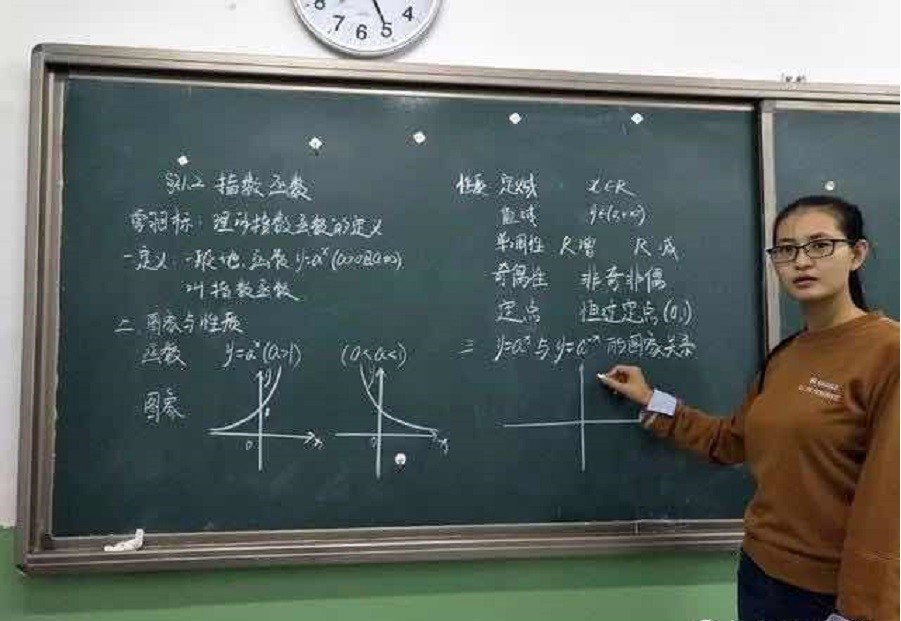 8
7
6
5
4
§4.1.2 指数函数
学习目标：理解指数函数的定义
一 定义：一般地，函数 y=aˣ (a>0且a≠1)
叫指数函数
二 图象与性质
函数 y=aˣ(a>1) (0<a<1)
图象
y
0
x
y
0
x
性质 定义域 x∈R
值域 y∈(0,+∞)
单调性 R增 R减
奇偶性 非奇非偶
定点 恒过定点(0,1)
三 y=aˣ与y=a⁻ˣ的图象关系